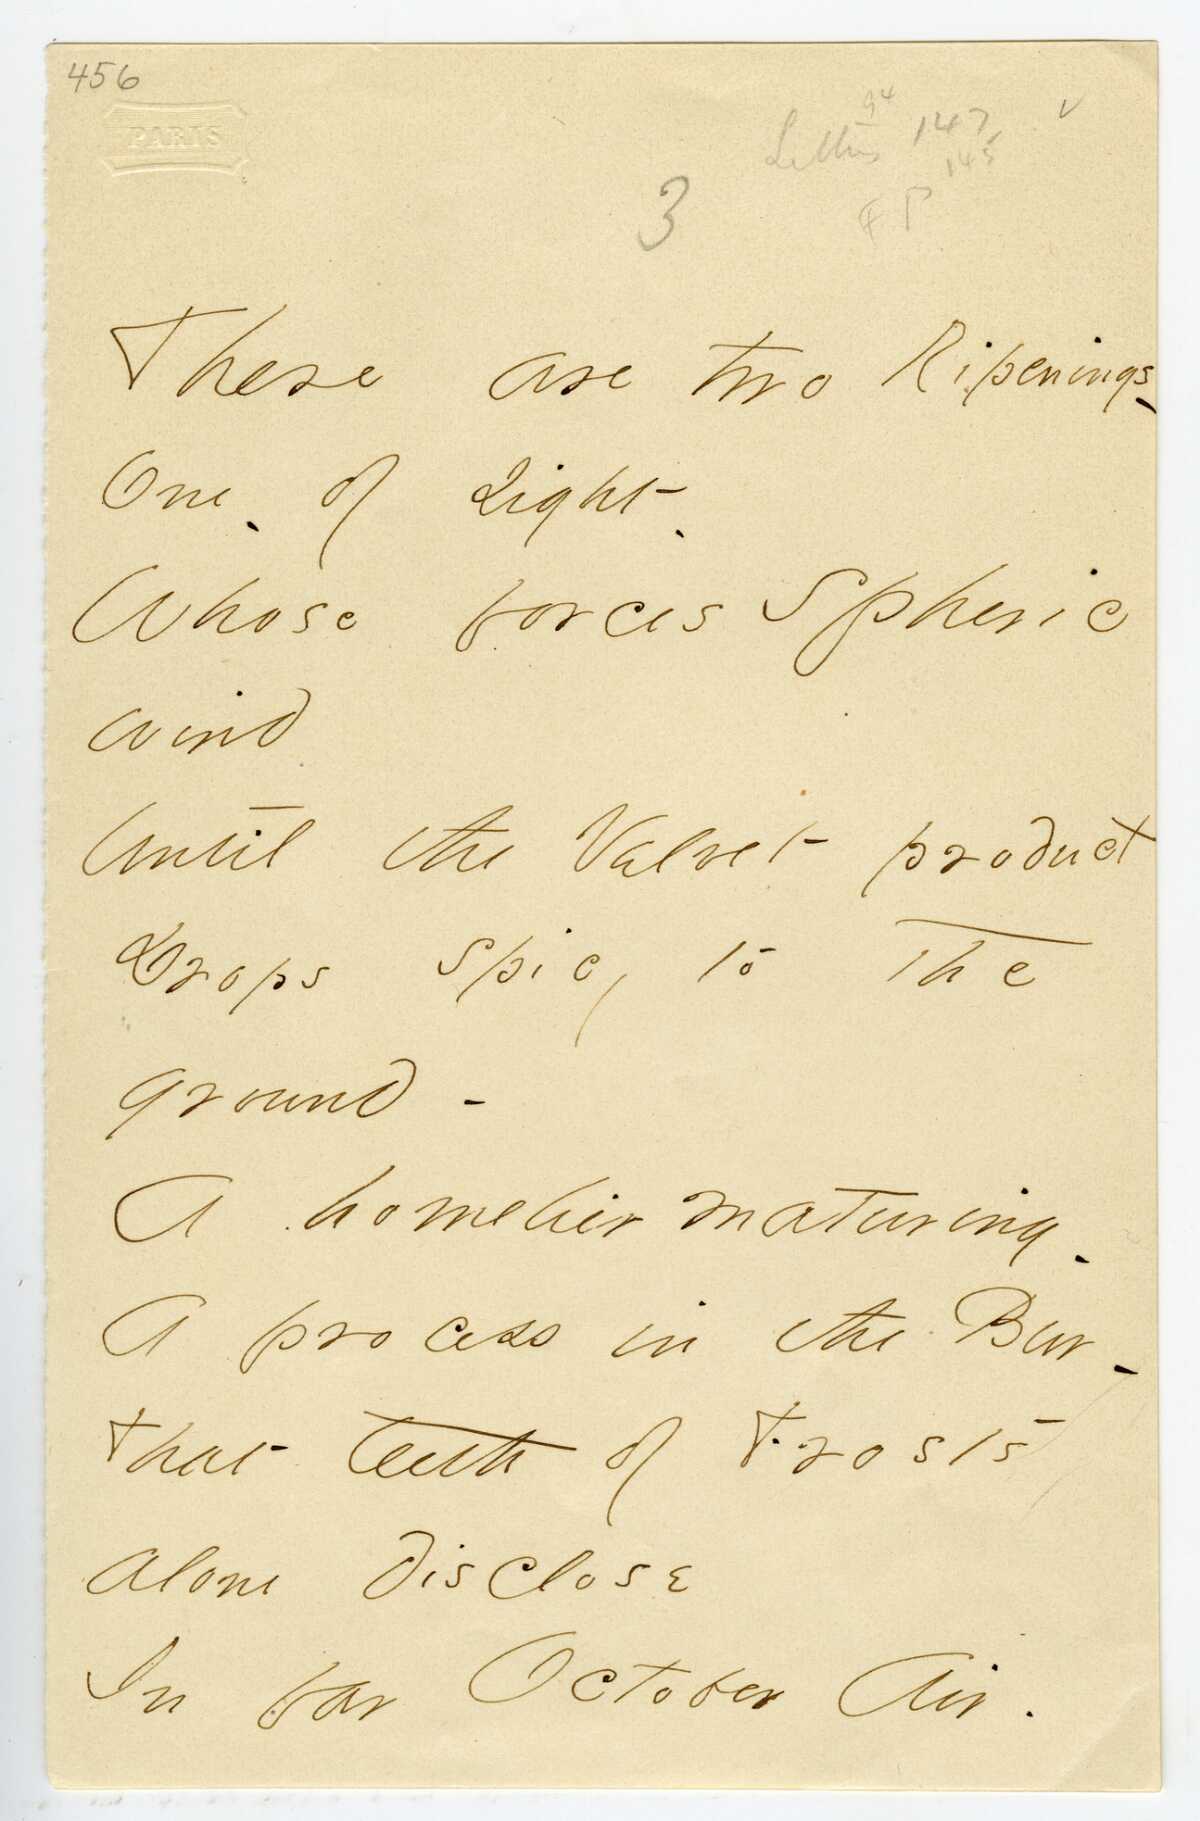 456
PARIS
94
Letters 147
145
FP
3
These are two Ripenings -
One - of Light -
Whose forces Spheric
wind
Until the Velvet product
Drops spicy to the
ground -
A homelier maturing -
A process in the Bur -
That teeth of Frosts,
alone disclose
In far October Air.